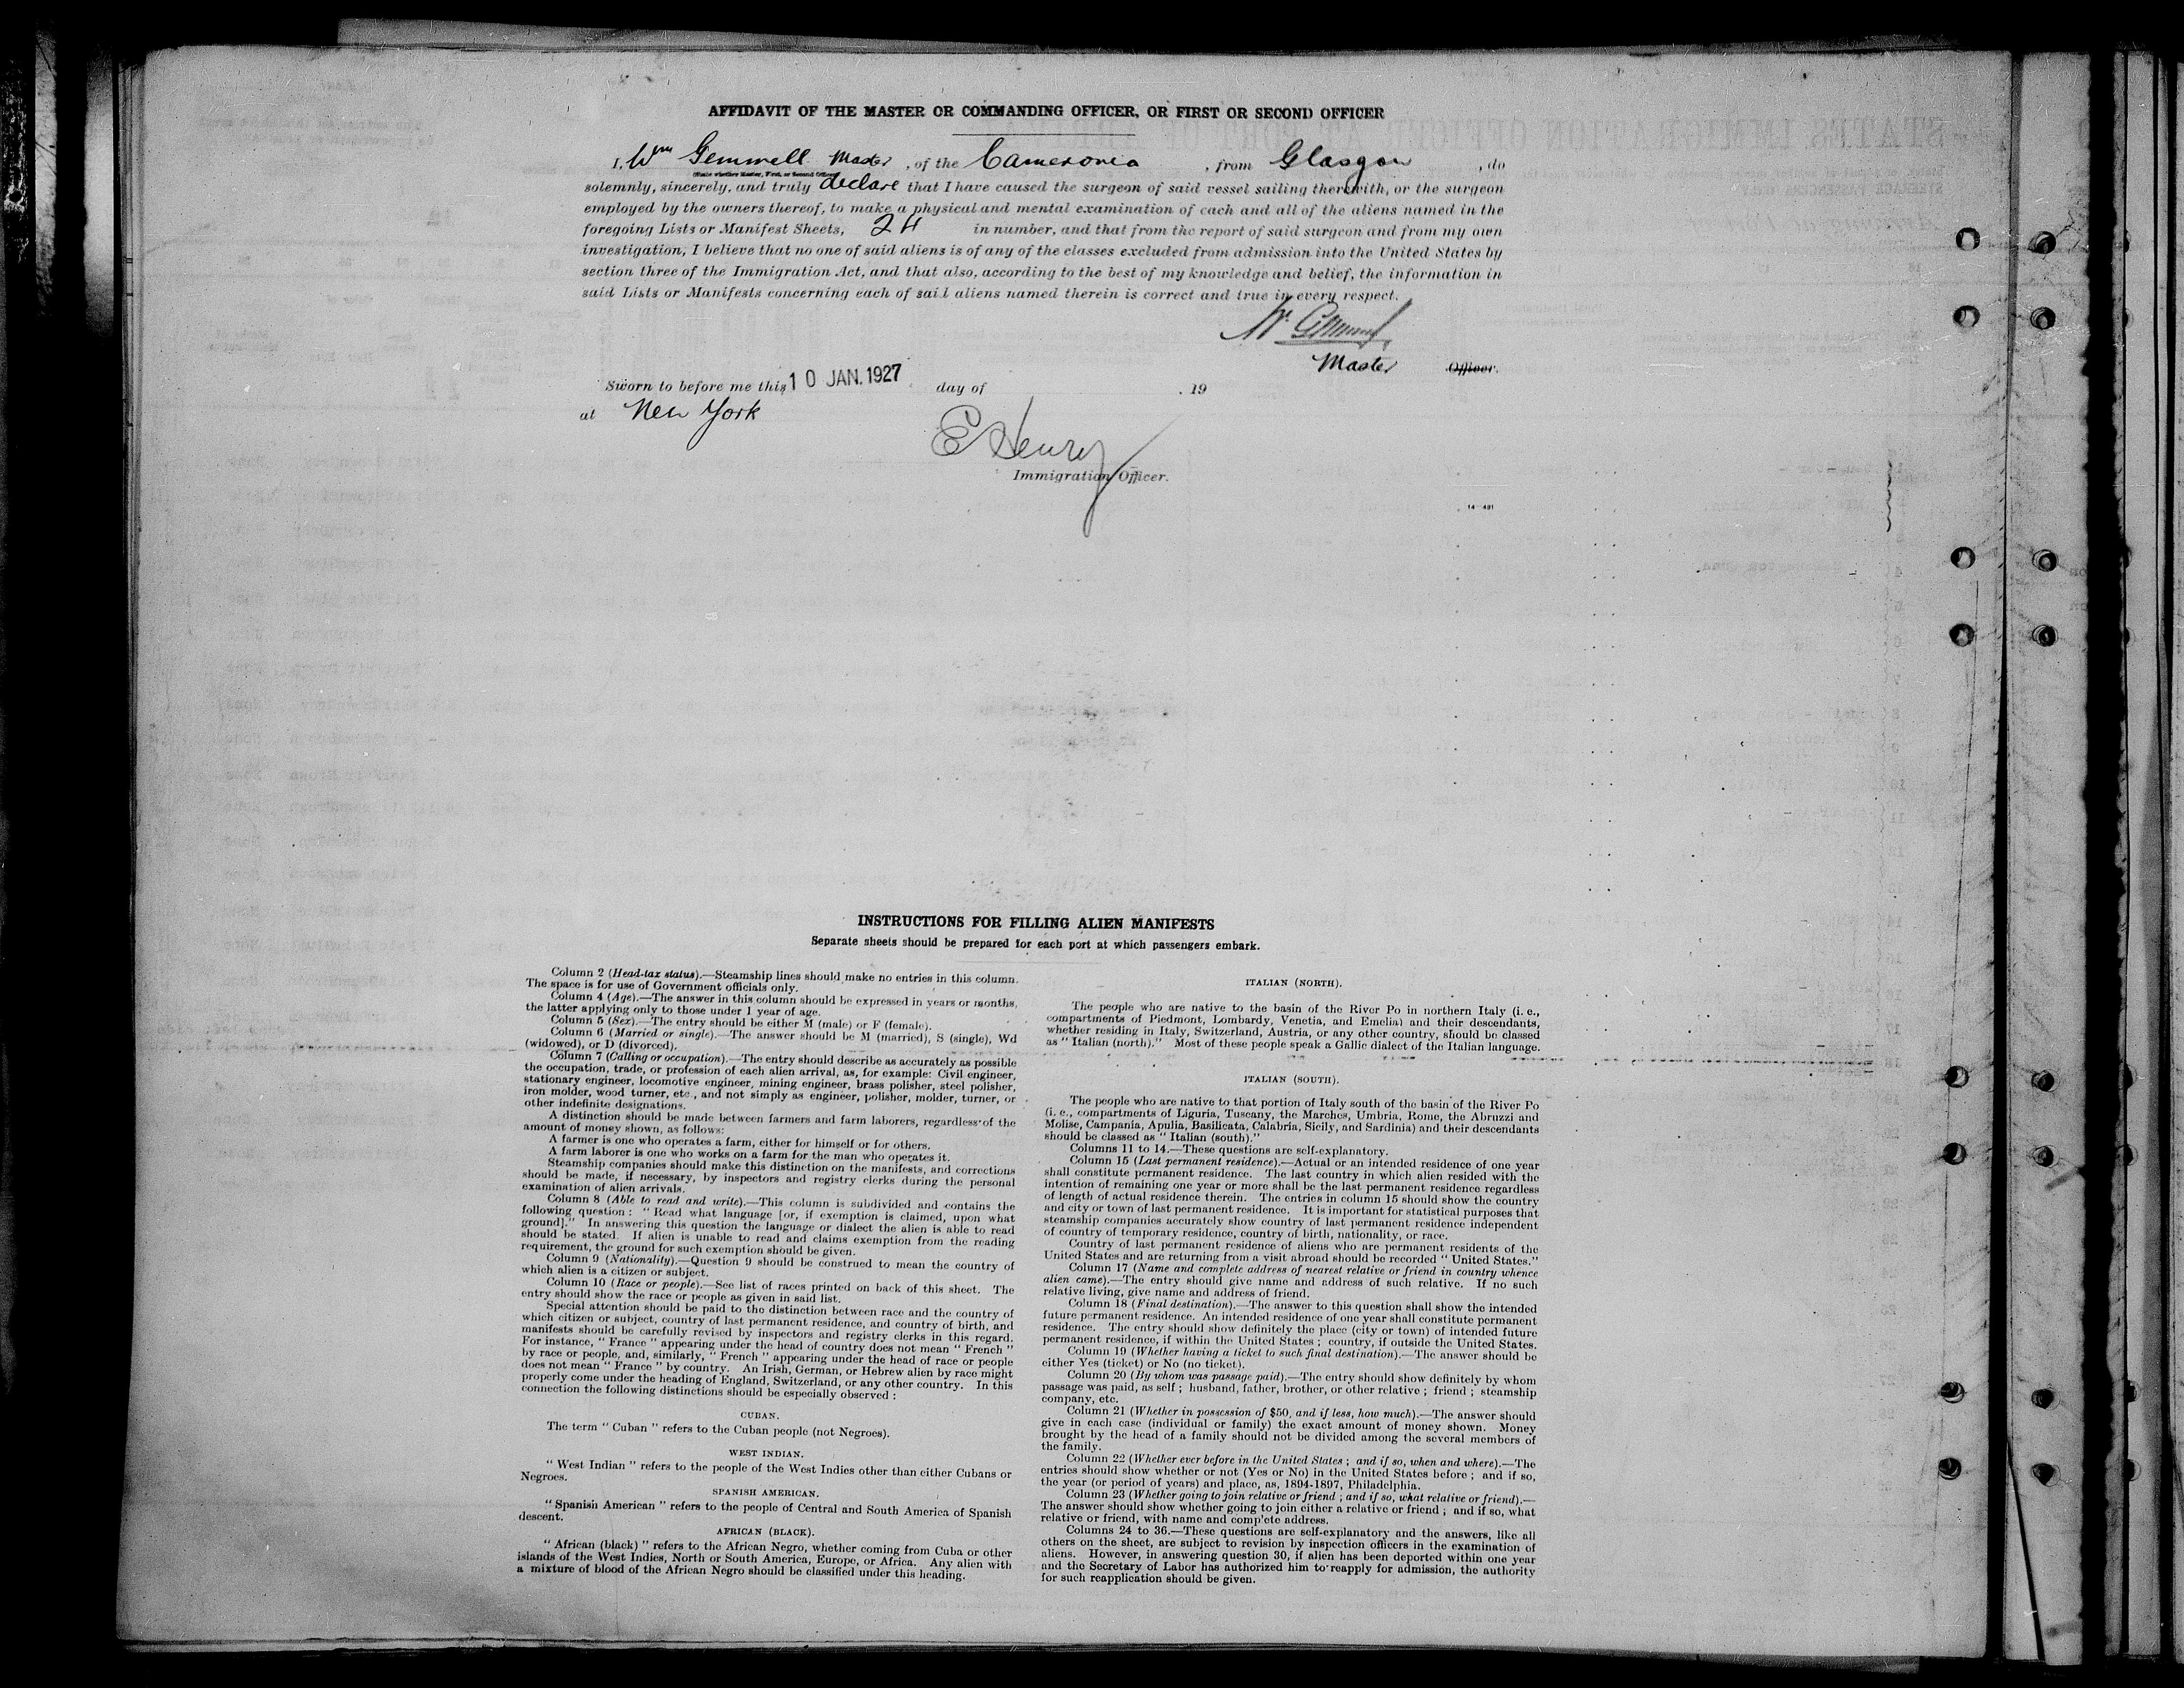 AFFIDAVIT OF THE MASTER OR COMMANDING OFFICER, OR FIRST OR SECOND OFFICER
I, Wm Gemmell Master, of the Cameronia, from Glasgow, do
(State whether Master, First, or Second Officer)
solemnly, sincerely, and truly declare that I have caused the surgeon of said vessel sailing therewith, or the surgeon
employed by the owners thereof, to make a physical and mental examination of each and all of the aliens named in the
foregoing Lists or Manifest Sheets, 24 in number, and that from the report of said surgeon and from my own
investigation, I believe that no one of said aliens is of any of the classes excluded from admission into the United States by
section three of the Immigration Act, and that also, according to the best of my knowledge and belief, the information in
said Lists or Manifests concerning each of said aliens named therein is correct and true in every respect.
Wm Gemmell
Master Officer.
Sworn to before me this 10 JAN. 1927 day of , 19
at New York
E Henry
Immigration Officer.
14—491
INSTRUCTIONS FOR FILLING ALIEN MANIFESTS
Separate sheets should be prepared for each port at which passengers embark.
Column 2 (Head-tax status).—Steamship lines should make no entries in this column.
The space is for use of Government officials only.
Column 4 (Age).—The answer in this column should be expressed in years or months,
the latter applying only to those under 1 year of age.
Column 5 (Sex).—The entry should be either M (male) or F (female).
Column 6 (Married or single).—The answer should be M (married), S (single), Wd
(widowed), or D (divorced).
Column 7 (Calling or occupation).—The entry should describe as accurately as possible
the occupation, trade, or profession of each alien arrival, as, for example: Civil engineer,
stationary engineer, locomotive engineer, mining engineer, brass polisher, steel polisher,
iron molder, wood turner, etc., and not simply as engineer, polisher, molder, turner, or
other indefinite designations.
A distinction should be made between farmers and farm laborers, regardless of the
amount of money shown, as follows:
A farmer is one who operates a farm, either for himself or for others.
A farm laborer is one who works on a farm for the man who operates it.
Steamship companies should make this distinction on the manifests, and corrections
should be made, if necessary, by inspectors and registry clerks during the personal
examination of alien arrivals.
Column 8 (Able to read and write).—This column is subdivided and contains the
following question: " Read what language [or, if exemption is claimed, upon what
ground]." In answering this question the language or dialect the alien is able to read
should be stated. If alien is unable to read and claims exemption from the reading
requirement, the ground for such exemption should be given.
Column 9 (Nationality).—Question 9 should be construed to mean the country of
which alien is a citizen or subject.
Column 10 (Race or people).—See list of races printed on back of this sheet. The
entry should show the race or people as given in said list.
Special attention should be paid to the distinction between race and the country of
which citizen or subject, country of last permanent residence, and country of birth, and
manifests should be carefully revised by inspectors and registry clerks in this regard.
For instance, " France " appearing under the head of country does not mean " French "
by race or people, and, similarly, " French " appearing under the head of race or people
does not mean " France " by country. An Irish, German, or Hebrew alien by race might
properly come under the heading of England, Switzerland, or any other country. In this
connection the following distinctions should be especially observed:
CUBAN.
The term " Cuban " refers to the Cuban people (not Negroes).
WEST INDIAN.
" West Indian " refers to the people of the West Indies other than either Cubans or
Negroes.
SPANISH AMERICAN.
" Spanish American " refers to the people of Central and South America of Spanish
descent.
AFRICAN (BLACK).
" African (black) " refers to the African Negro, whether coming from Cuba or other
islands of the West Indies, North or South America, Europe, or Africa. Any alien with
a mixture of blood of the African Negro should be classified under this heading.
ITALIAN (NORTH).
The people who are native to the basin of the River Po in northern Italy (i. e.,
compartments of Piedmont, Lombardy, Venetia, and Emelia) and their descendants,
whether residing in Italy, Switzerland, Austria, or any other country, should be classed
as " Italian (north)." Most of these people speak a Gallic dialect of the Italian language.
ITALIAN (SOUTH).
The people who are native to that portion of Italy south of the basin of the River Po
(i. e., compartments of Liguria, Tuscany, the Marches, Umbria, Rome, the Abruzzi and
Molise, Campania, Apulia, Basilicata, Calabria, Sicily, and Sardinia) and their descendants
should be classed as " Italian (south)."
Columns 11 to 14.—These questions are self-explanatory.
Column 15 (Last permanent residence).—Actual or an intended residence of one year
shall constitute permanent residence. The last country in which alien resided with the
intention of remaining one year or more shall be the last permanent residence regardless
of length of actual residence therein. The entries in column 15 should show the country
and city or town of last permanent residence. It is important for statistical purposes that
steamship companies accurately show country of last permanent residence independent
of country of temporary residence, country of birth, nationality, or race.
Country of last permanent residence of aliens who are permanent residents of the
United States and are returning from a visit abroad should be recorded " United States."
Column 17 (Name and complete address of nearest relative or friend in country whence
alien came).—The entry should give name and address of such relative. If no such
relative living, give name and address of friend.
Column 18 (Final destination).—The answer to this question shall show the intended
future permanent residence. An intended residence of one year shall constitute permanent
residence. The entry should show definitely the place (city or town) of intended future
permanent residence, if within the United States; country, if outside the United States.
Column 19 (Whether having a ticket to such final destination).—The answer should be
either Yes (ticket) or No (no ticket).
Column 20 (By whom was passage paid).—The entry should show definitely by whom
passage was paid, as self; husband, father, brother, or other relative; friend; steamship
company, etc.
Column 21 (Whether in possession of $50, and if less, how much).—The answer should
give in each case (individual or family) the exact amount of money shown. Money
brought by the head of a family should not be divided among the several members of
the family.
Column 22 (Whether ever before in the United States; and if so, when and where).—The
entries should show whether or not (Yes or No) in the United States before; and if so,
the year (or period of years) and place, as, 1894-1897, Philadelphia.
Column 23 (Whether going to join relative or friend; and if so, what relative or friend).—
The answer should show whether going to join either a relative or friend; and if so, what
relative or friend, with name and complete address.
Columns 24 to 36.—These questions are self-explanatory and the answers, like all
others on the sheet, are subject to revision by inspection officers in the examination of
aliens. However, in answering question 30, if alien has been deported within one year
and the Secretary of Labor has authorized him to reapply for admission, the authority
for such reapplication should be given.